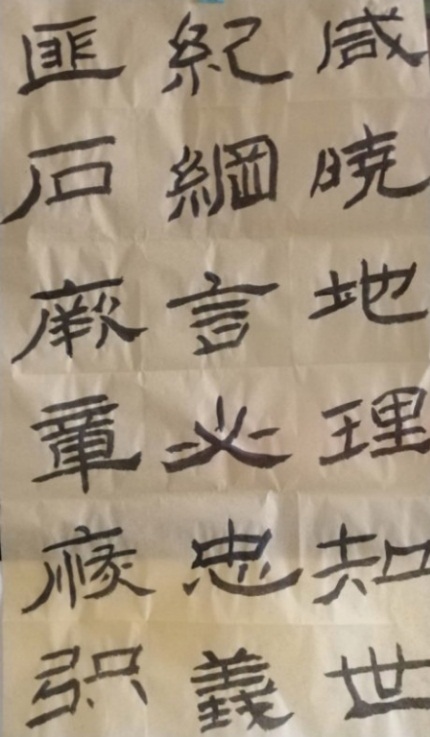 咸暁地理知世
紀綱言必忠義
匪石厥章